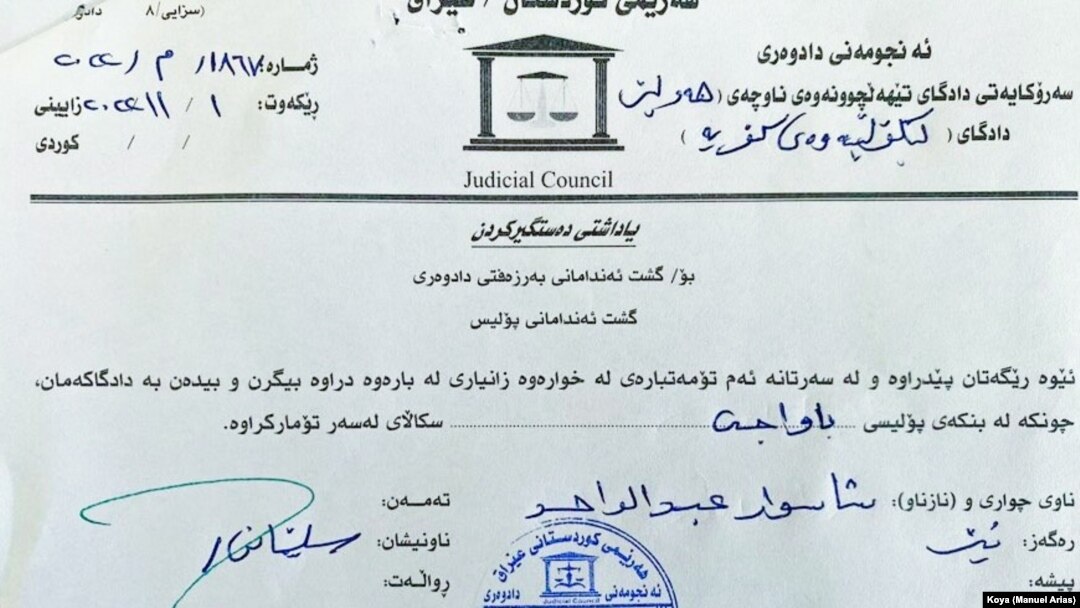 هەرێمی کوردستان / عێراق
(سزایی/ ٨
ئەنجومەنی دادوەری
سەرۆکایەتی دادگای تێهەڵچوونەوەی ناوچەی (هەولێر
دادگای ( لێکۆڵینەوەی )
ژمارە:
ڕێکەوت: ١ / زایینی
/ / کوردی
Judicial Council
یاداشتی دەستگیرکردن
بۆ/ گشت ئەندامانی بەرزەفتی دادوەری
گشت ئەندامانی پۆلیس
ئێوە رێگەتان پێدراوە و لە سەرتانە ئەم تۆمەتبارەی لە خوارەوە زانیاری لە بارەوە دراوە بیگرن و بیدەن بە دادگاکەمان،
چونکە لە بنکەی پۆلیسی باواجی سکاڵای لەسەر تۆمارکراوە.
ناوی چواری و (نازناو): شاسوار عبدالواحد
تەمەن:
رەگەز: نێر
ناونیشان: سلێمانی
پیشە:
ڕواڵەت:
هەرێمی کوردستانی عێراق
ئەنجومەنی دادوەری
Judicial Council
Koya (Manuel Arias)